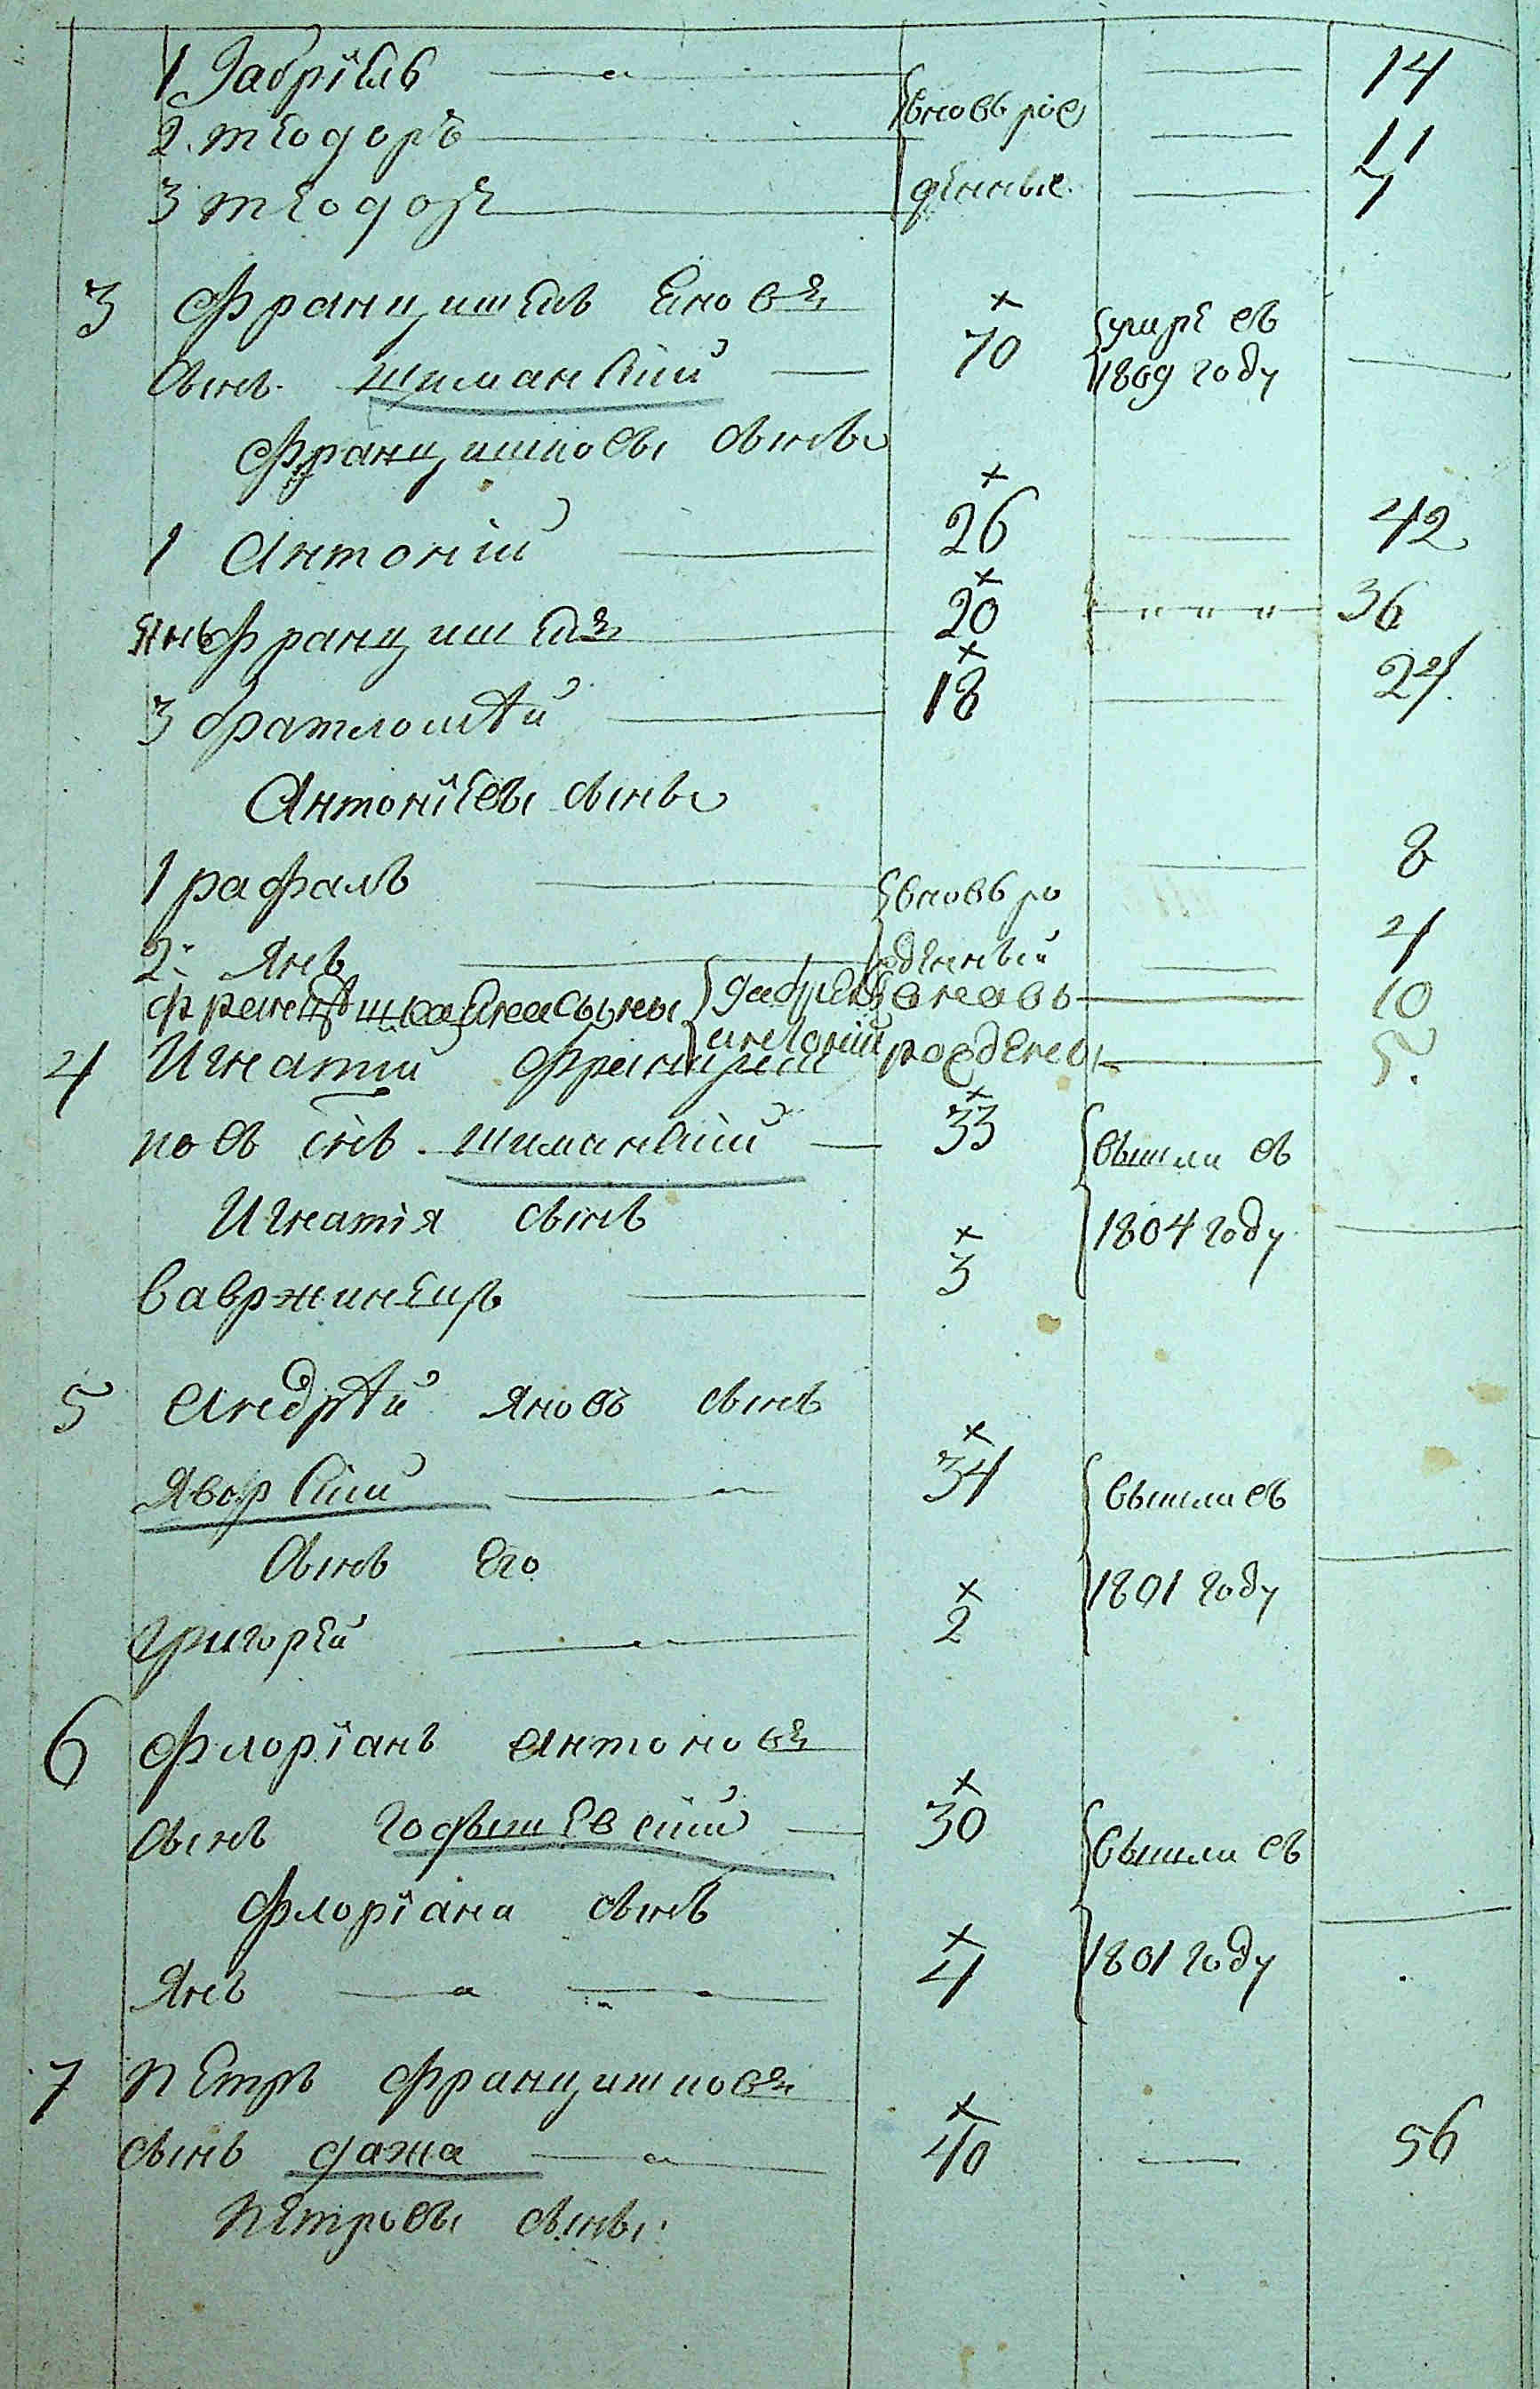 1 Габріель 14
2. теодоръ вновь рож 11
3 теодозъ денные. 7
3 францишекъ Яновъ + умре въ
сынъ. шиманскій 70 1809 году
францишковы сыны
+
1 Антоній 26 42
+
Янъ францишекъ 20 " " " " 36
+
3 бартломѣй 18 24.
Антоніевы сыны
1 рафалъ вновь ро 8
2: Янъ жденный 4
францишка Яна сыны габріель вновь 10
антоній рождены 5.
4 Игнатій францишковъ
сынъ шиманскій + 33 вышли въ
Игнатія сынъ 1804 году
вавржинецъ + 3
5 андрѣй Яновъ сынъ
Яворскій + 34 вышли въ
сынъ его 1801 году
григорей + 2
6 флоріанъ антоновъ
сынъ + 30 вышли въ
флоріана сынъ
Янъ + 4 1801 году
7 петръ францишковъ
сынъ дажа + 40 56
петровы сыны: